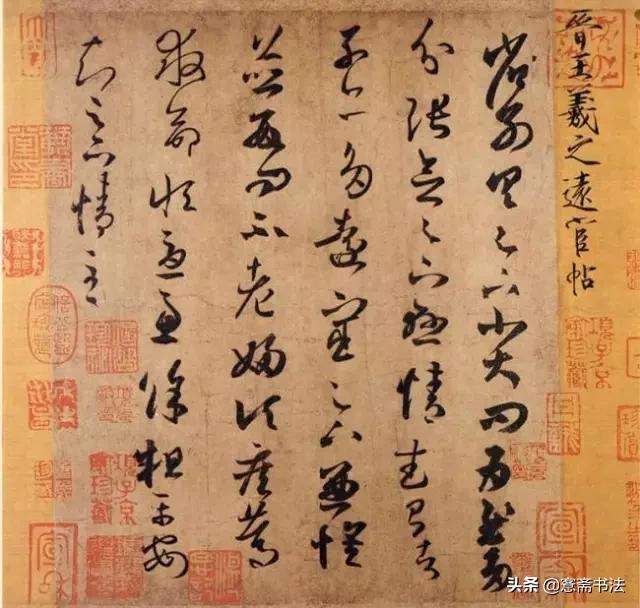 晉王羲之遠宦帖
省別具足下小大問為慰多
分張念足下懸情武昌諸
子亦多遠宦足下兼懷
並數問不老婦頃疾篤
救命恒憂慮餘粗平安
知足下情至
头条 @斋书法